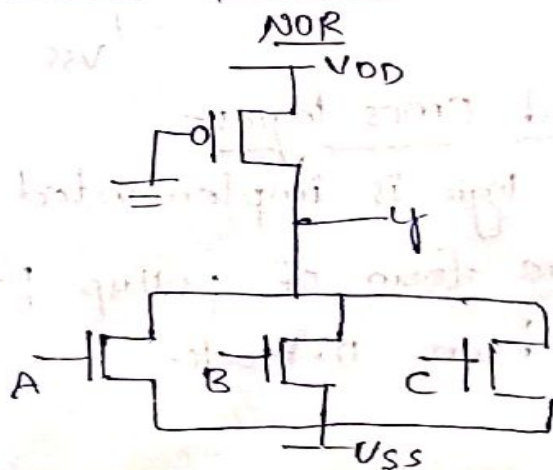 NOR
VDD
y
A
B
C
VSS